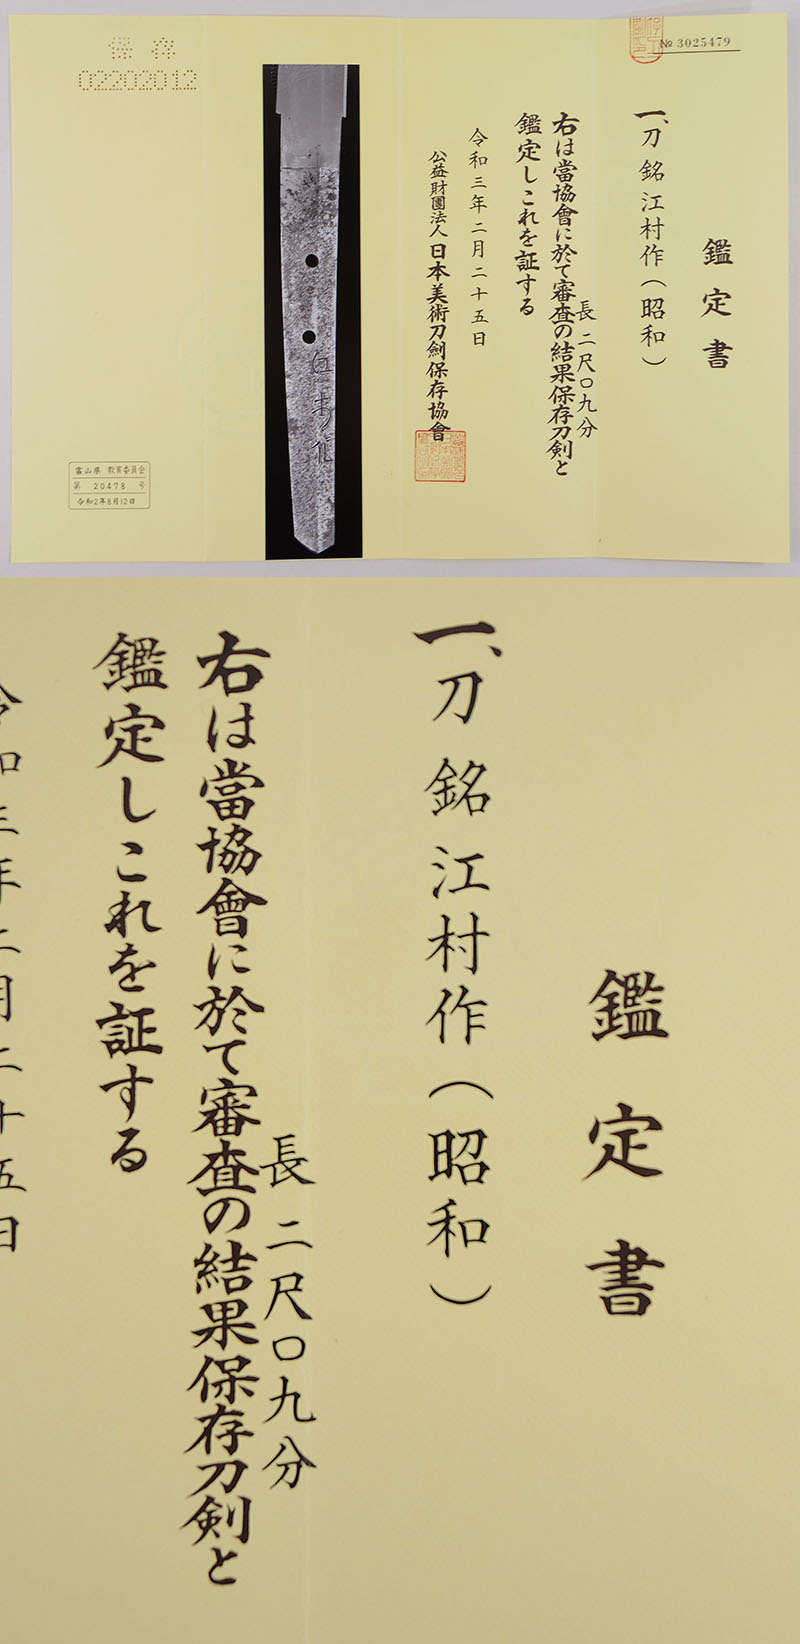 № 3025479
鑑定書
一、刀 銘 江村作(昭和)
長 二尺〇九分
右は當協會に於て審査の結果保存刀剣と
鑑定しこれを証する
令和三年二月二十五日
公益財團法人 日本美術刀劍保存協會
江村作
保存
02202012
富山県 教育委員会
第 20478 号
令和2年8月12日
鑑定書
一、刀 銘 江村作(昭和)
長 二尺〇九分
右は當協會に於て審査の結果保存刀剣と
鑑定しこれを証する
令和三年二月二十五日